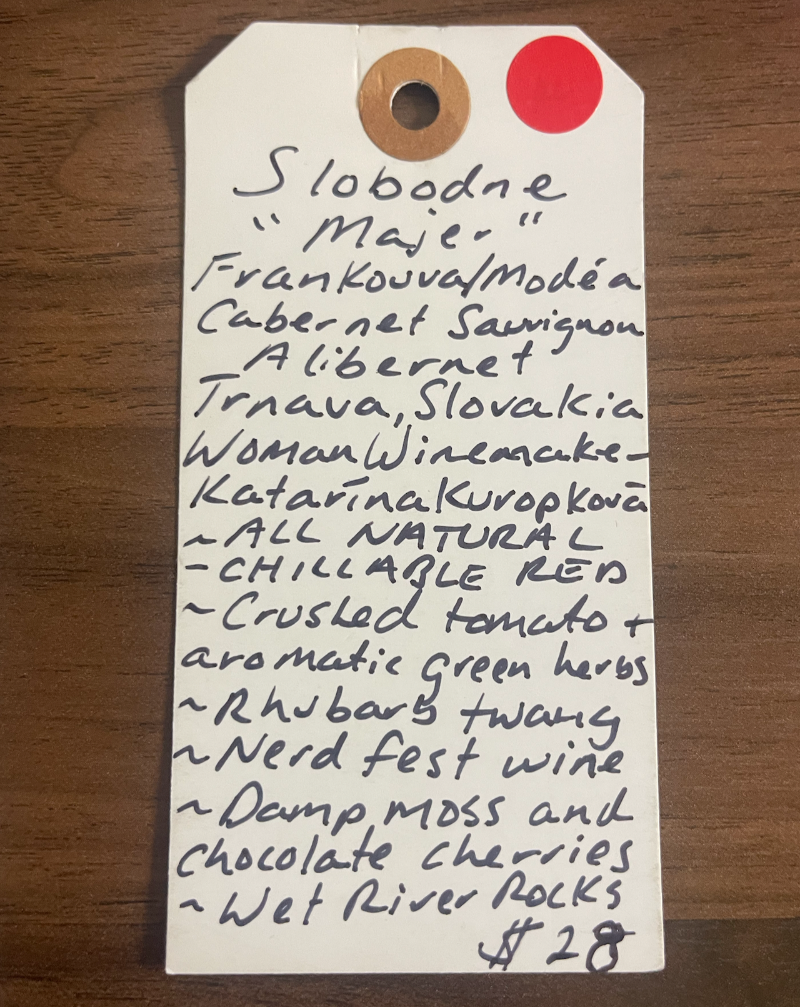 Slobodne
"Majer"
Frankouva/Modéa
Cabernet Sauvignon
Alibernet
Trnava, Slovakia
Woman Winemaker
Katarína Kuropková
~ALL NATURAL
-CHILLABLE RED
~Crushed tomato +
aromatic green herbs
~Rhubarb twang
~Nerd fest wine
~Damp moss and
chocolate cherries
~Wet River Rocks
$28